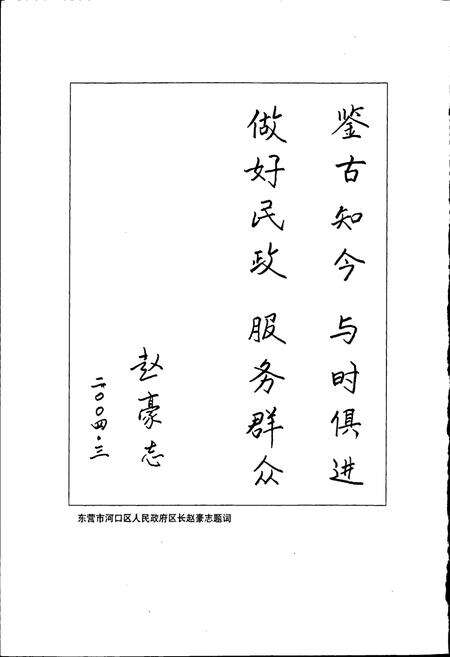 鉴古知今 与时俱进
做好民政 服务群众
赵豪志
二〇〇四·三
东营市河口区人民政府区长赵豪志题词